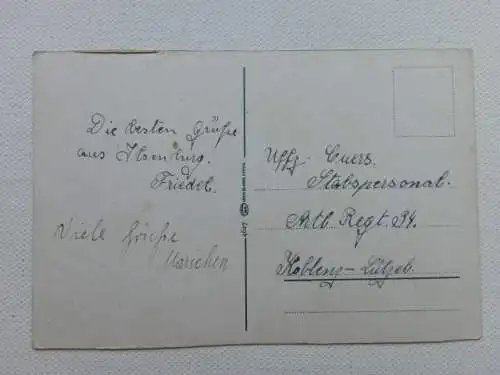 Die besten Grüße
aus Ilsenburg.
Friedel.
Viele Grüße
Mariechen
Uffz. Cuers.
Stabspersonal.
Artl. Regt. 34.
Koblenz-Lützel.